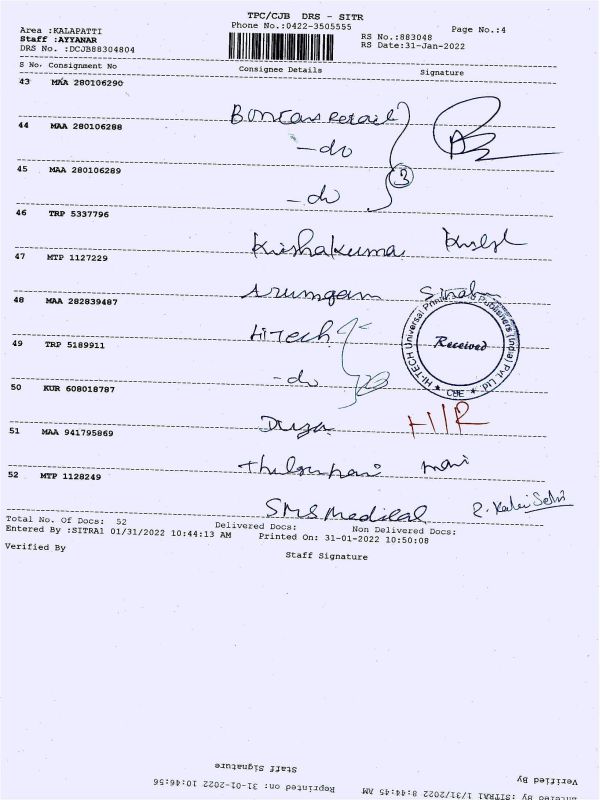 TPC/CJB DRS - SITR
Phone No.:0422-3505555
Page No.:4
Area :KALAPATTI
Staff :AYYANAR
DRS No. :DCJB88304804
RS No.:883048
RS Date:31-Jan-2022
S No. Consignment No Consignee Details Signature
43 MAA 280106290
44 MAA 280106288
-do
45 MAA 280106289 3
-do
46 TRP 5337796
Krishakuma
47 MTP 1127229
Arumgam
48 MAA 282839487
Hi-Tech
HI-TECH Universal Publishers (India) Pvt. Ltd.
Received
★ CBE ★
49 TRP 5189911
-do
50 KUR 608018787
51 MAA 941795869
mani
52 MTP 1128249
SMS Medical
Total No. Of Docs: 52 Delivered Docs: Non Delivered Docs:
Entered By :SITRA1 01/31/2022 10:44:13 AM Printed On: 31-01-2022 10:50:08
Verified By Staff Signature
Staff Signature
Verified By
Reprinted on: 31-01-2022 10:46:56
By :SITRA1 1/31/2022 8:44:45 AM